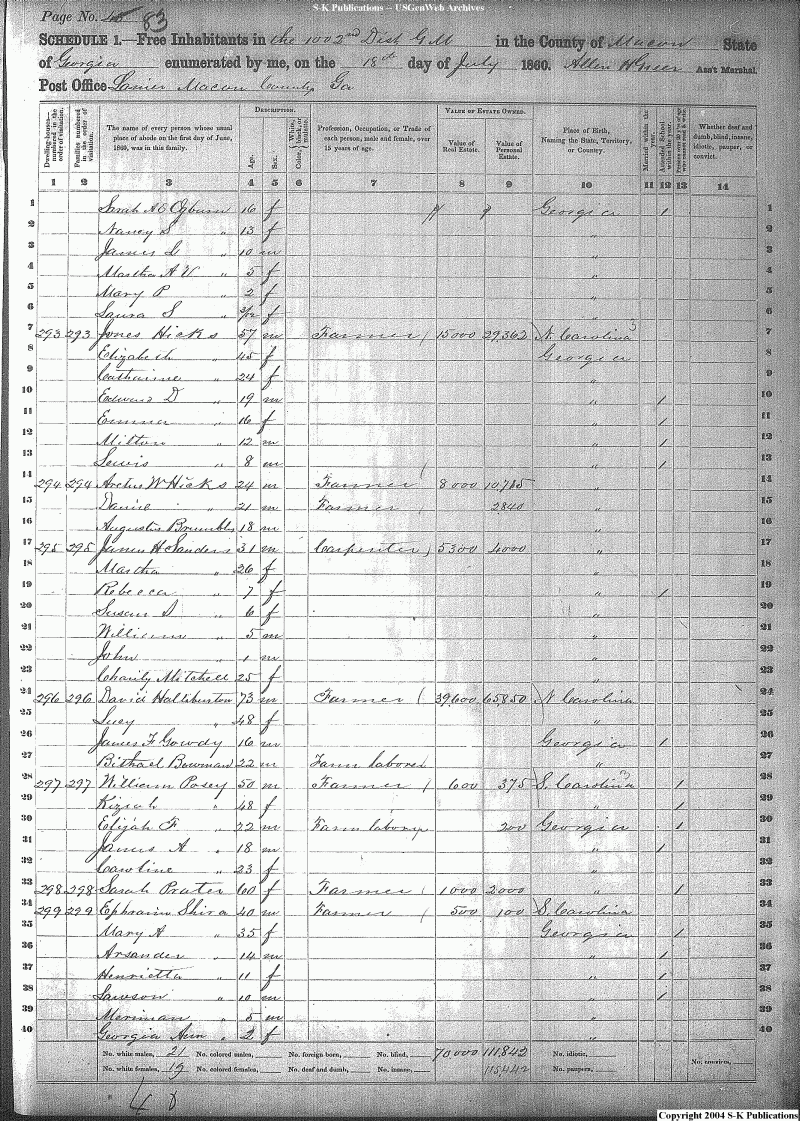 S-K Publications -- USGenWeb Archives
Page No. 45 83
SCHEDULE 1.—Free Inhabitants in the 1002nd Dist G M in the County of Macon State
of Georgia enumerated by me, on the 18th day of July 1860. Allen H Greer Ass't Marshal.
Post Office Lanier Macon County Ga
Dwelling-houses numbered in the order of visitation.
Families numbered in the order of visitation.
The name of every person whose usual place of abode on the first day of June, 1860, was in this family.
DESCRIPTION.
Age.
Sex.
Color, White, black, or mulatto.
Profession, Occupation, or Trade of each person, male and female, over 15 years of age.
VALUE OF ESTATE OWNED.
Value of Real Estate.
Value of Personal Estate.
Place of Birth, Naming the State, Territory, or Country.
Married within the year.
Attended School within the year.
Whether deaf and dumb, blind, insane, idiotic, pauper, or convict.
1 2 3 4 5 6 7 8 9 10 11 12 13 14
1 Sarah A E Ogburn 16 f Georgia / 1
2 Nancy S " 13 f " 2
3 James L " 10 m " 3
4 Martha A V " 5 f " 4
5 Mary P " 2 f " 5
6 Laura S " f " 6
7 293 293 Jones Hicks 57 m Farmer 15000 29,362 N. Carolina 3 7
8 Elizabeth " 45 f Georgia 8
9 Catharine " 24 f " 9
10 Edward D " 19 m " / 10
11 Emma " 16 f " / 11
12 Milton " 12 m " / 12
13 Lewis " 8 m " / 13
14 294 294 W Hicks 24 m Farmer 8000 10,785 " 14
15 " 21 m Farmer 2840 " 15
16 Augustus 18 m " 16
17 295 295 James H Sanders 31 m Carpenter 5300 4000 " 17
18 Martha " 26 f " 18
19 Rebecca " 7 f " / 19
20 Susan S " 6 f " 20
21 William " 5 m " 21
22 John " 1 m " 22
23 Charity Mitchell 25 f " 23
24 296 296 David Halliburton 73 m Farmer 39,600 65,850 N Carolina 24
25 Lucy " 48 f " 25
26 James F Gowdy 16 m Georgia / 26
27 Bowman 22 m Farm laborer " 27
28 297 297 William Posey 50 m Farmer 600 375 S. Carolina 3 / 28
29 Kiziah " 48 f " / 29
30 Elijah F " 22 m Farm laborer 200 Georgia / 30
31 James A " 18 m " / 31
32 Caroline " 23 f " 32
33 298 298 Sarah Prater 60 f Farmer 1000 2000 " / 33
34 299 299 Ephraim Shira 40 m Farmer 500 100 S. Carolina 34
35 Mary A " 35 f Georgia / 35
36 Arsander " 14 m " / 36
37 Henrietta " 11 f " / 37
38 Lawson " 10 m " / 38
39 Meriman " 5 m " 39
40 Georgia Ann " 2 f " 40
No. white males, 21 No. colored males, No. foreign born, No. blind, 70000 111,842 No. idiotic,
No. white females, 19 No. colored females, No. deaf and dumb, No. insane, 115,442 No. paupers, No. convicts,
Copyright 2004 S-K Publications